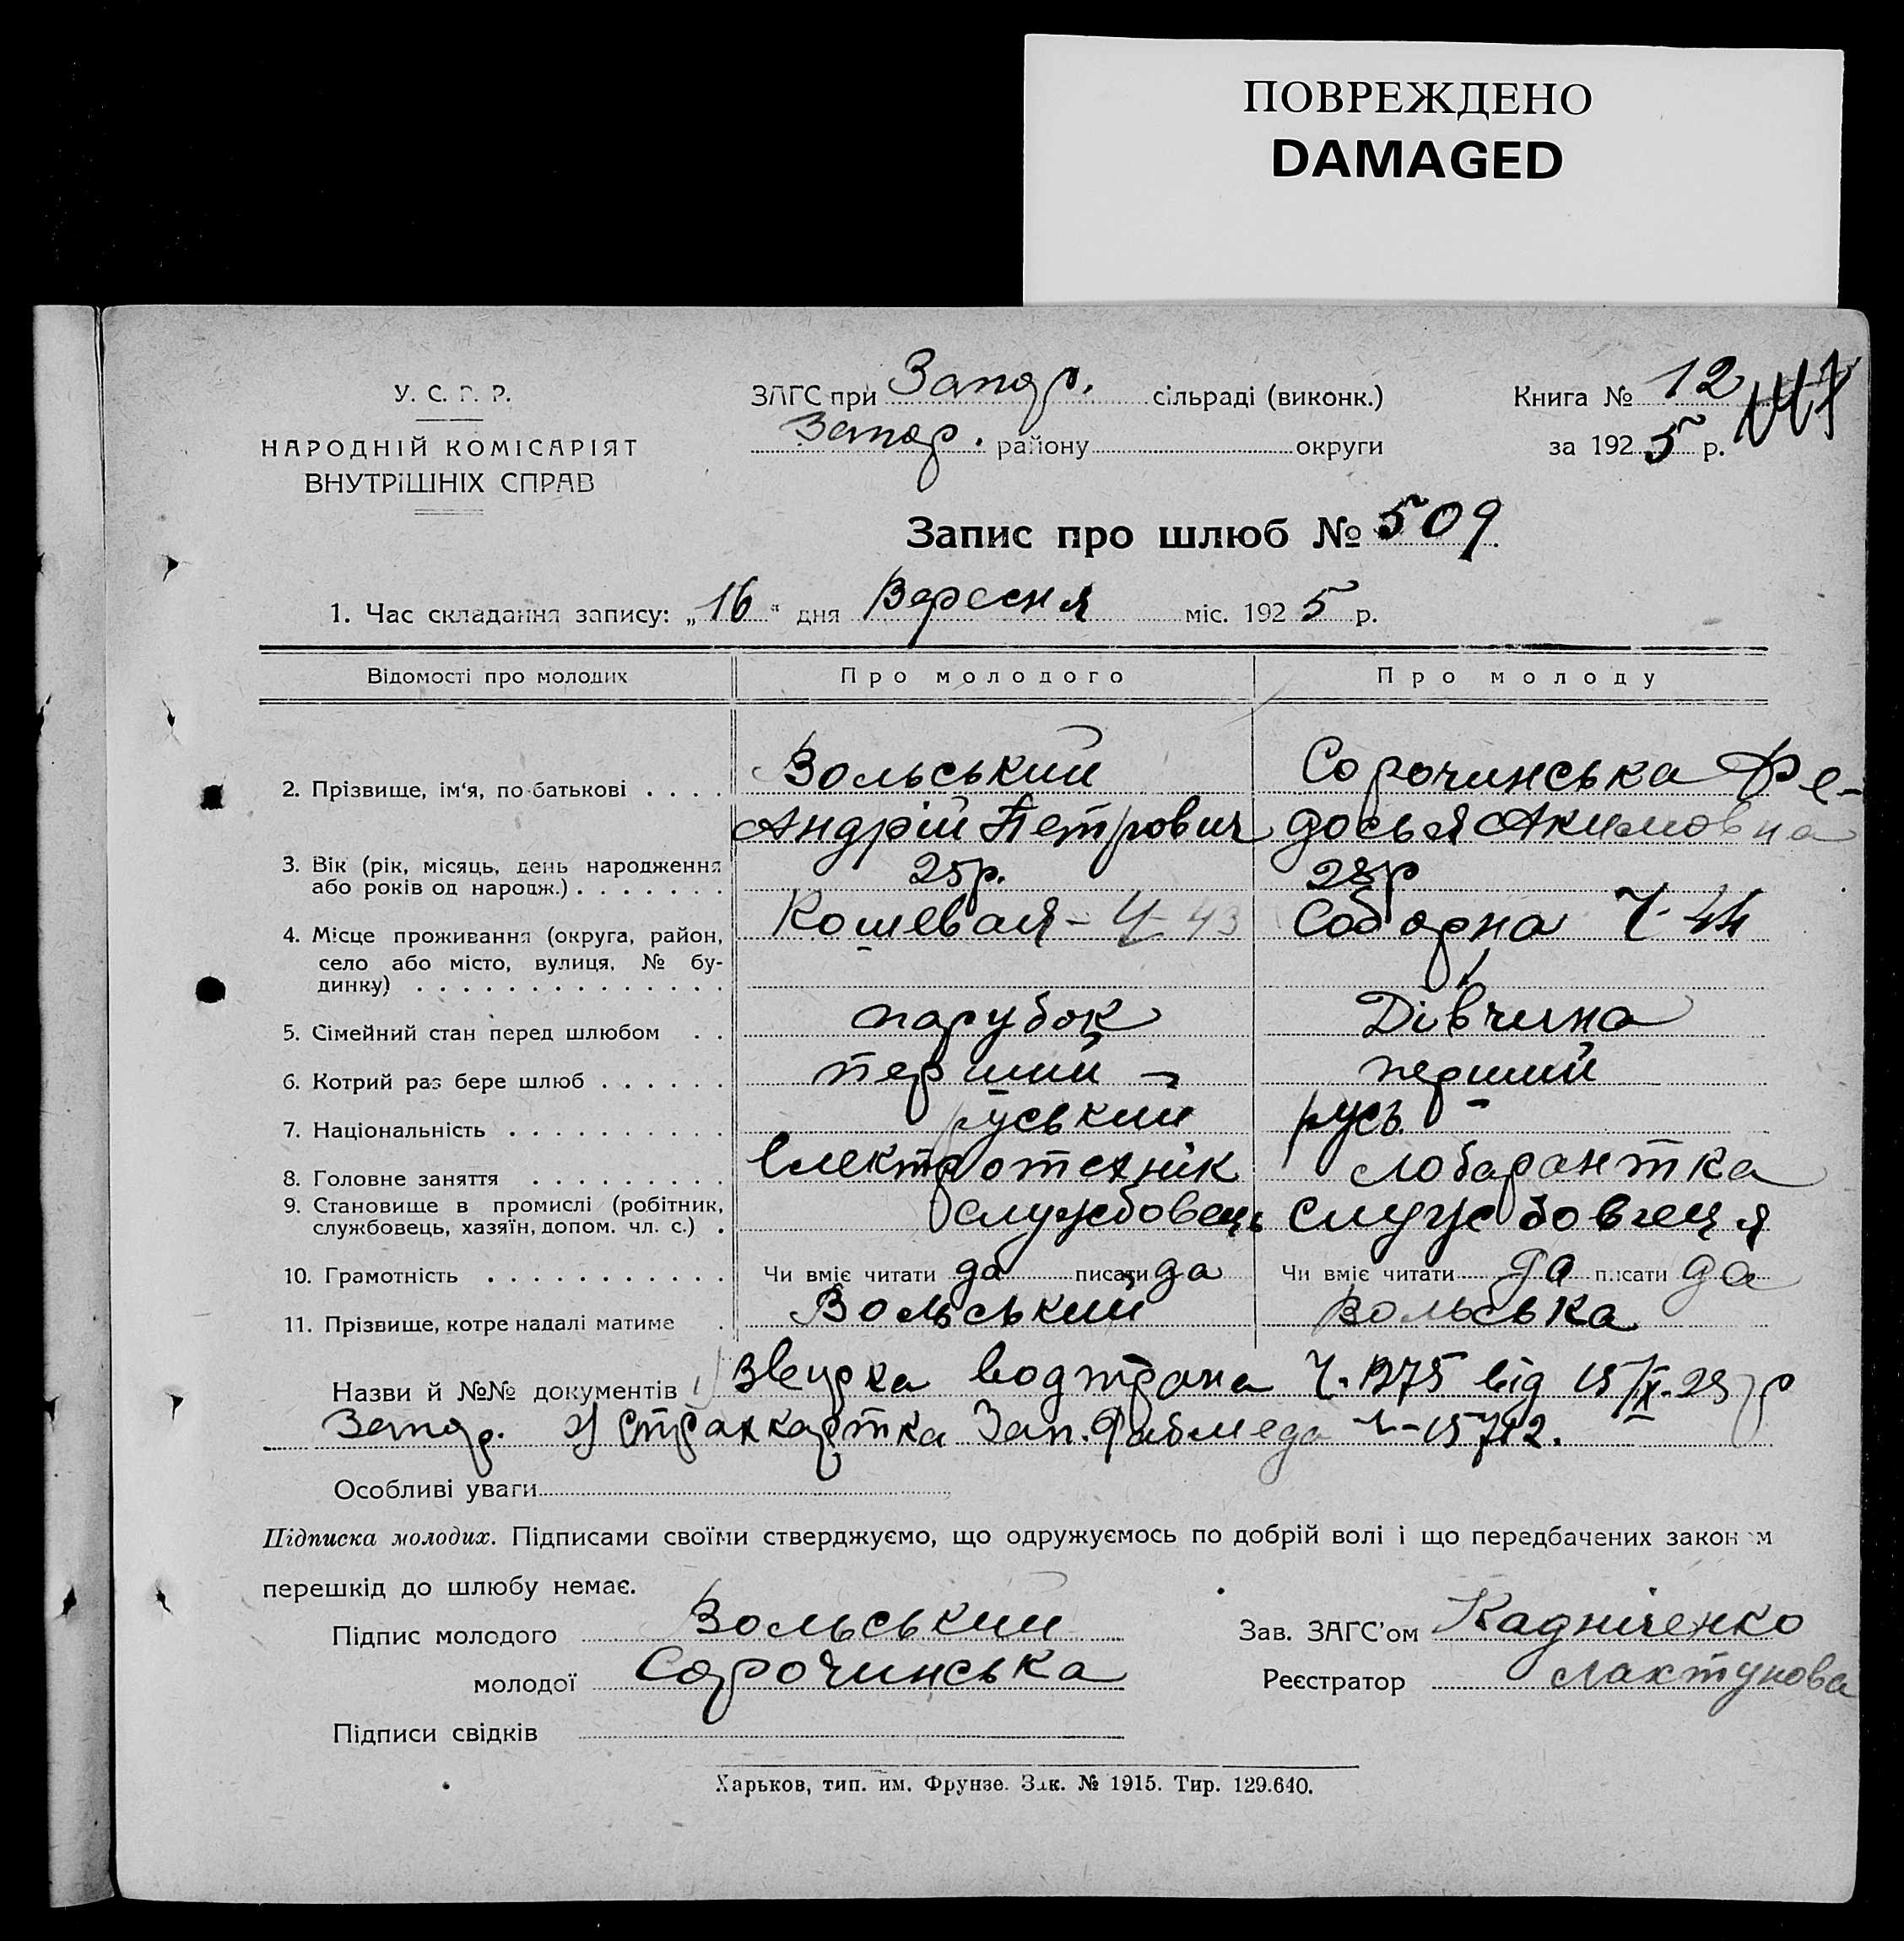 ПОВРЕЖДЕНО
DAMAGED
У. С. Р. Р.
НАРОДНІЙ КОМІСАРІЯТ
ВНУТРІШНІХ СПРАВ
ЗАГС при Запор. сільраді (виконк.)
Запор. району округи
Книга № 12
за 1925 р.
Запис про шлюб № 509
1. Час складання запису: „16“ дня Вересня міс. 1925 р.
Відомості про молодих Про молодого Про молоду
2. Прізвище, ім'я, по-батькові . . . . Вольський Сорочинська Фе-
Андрій Петрович досья Акимовна
3. Вік (рік, місяць, день народження
або років од народж.) . . . . . . . 25р. 23р
4. Місце проживання (округа, район, Кошевая - Ч- 43 Соборна Ч-44
село або місто, вулиця, № бу-
динку) . . . . . . . . . . . . . .
5. Сімейний стан перед шлюбом . . парубок Дівчина
6. Котрий раз бере шлюб . . . . . . перший - перший -
7. Національність . . . . . . . . . . руський русь.
8. Головне заняття . . . . . . . . . Електротехнік лоборантка
9. Становище в промислі (робітник,
службовець, хазяїн, допом. чл. с.) . службовець службовеця
10. Грамотність . . . . . . . . . . . Чи вміє читати да писати да Чи вміє читати да писати да
11. Прізвище, котре надалі матиме . Вольський Вольська
Назви й №№ документів 1) Ч. 1375 від 15/IX-25 р
Запор. 2) Страхкартка Зап. Ч-15712.
Особливі уваги
Підписка молодих. Підписами своїми стверджуємо, що одружуємось по добрій волі і що передбачених законом
перешкід до шлюбу немає.
Підпис молодого Вольський Зав. ЗАГС'ом Кадніченко
молодої Сорочинська Реєстратор Лахтунова
Підписи свідків
Харьков, тип. им. Фрунзе. Зак. № 1915. Тир. 129.640.